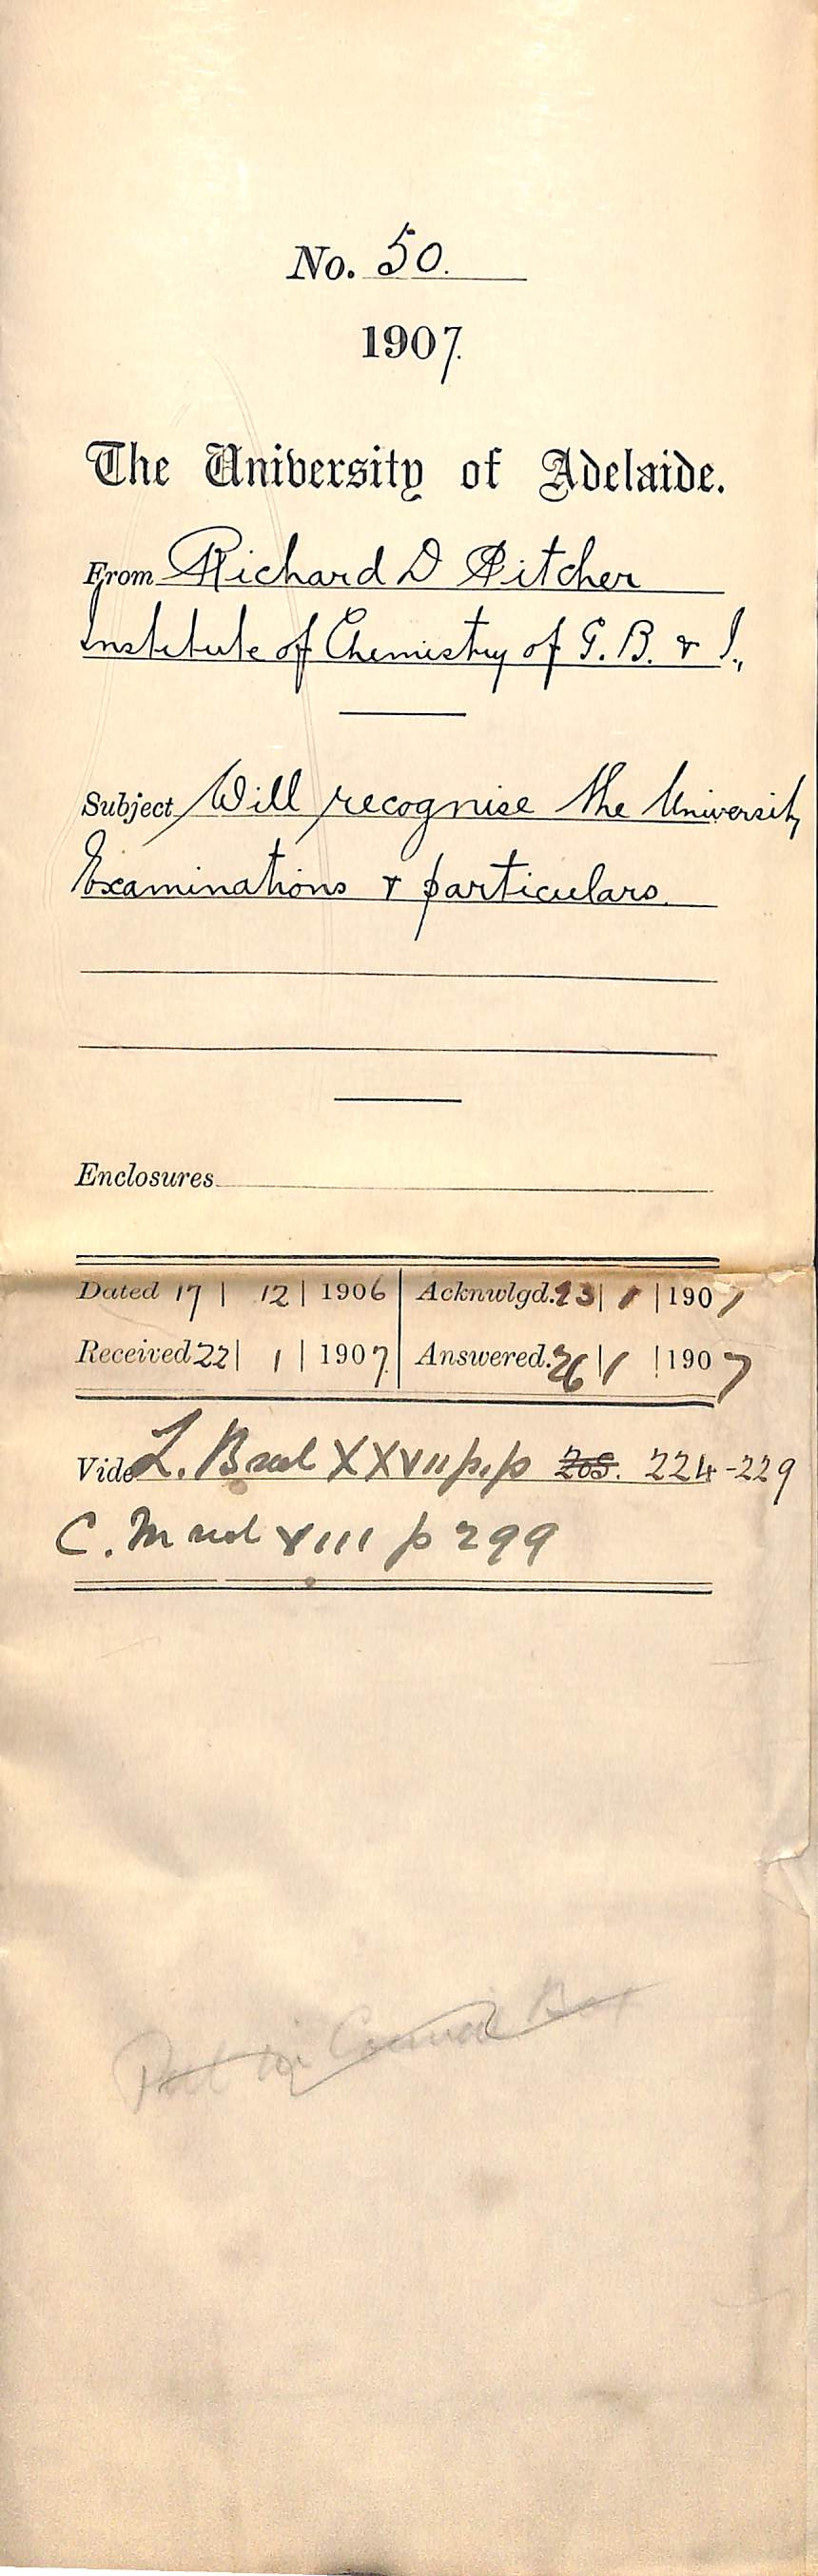 No. 50.
1907.
The University of Adelaide.
From Richard D Pitcher
Institute of Chemistry of G. B. & I.,
Subject Will recognise the University
Examinations & particulars.
Enclosures
Dated 17 | 12 | 1906 Acknwlgd. 23 | 1 | 1907
Received 22 | 1 | 1907. Answered. 26 | 1 | 1907
Vide L. B vol XXVII p.p 205. 224-229
C. M vol XIII p 299
Put in Council Box